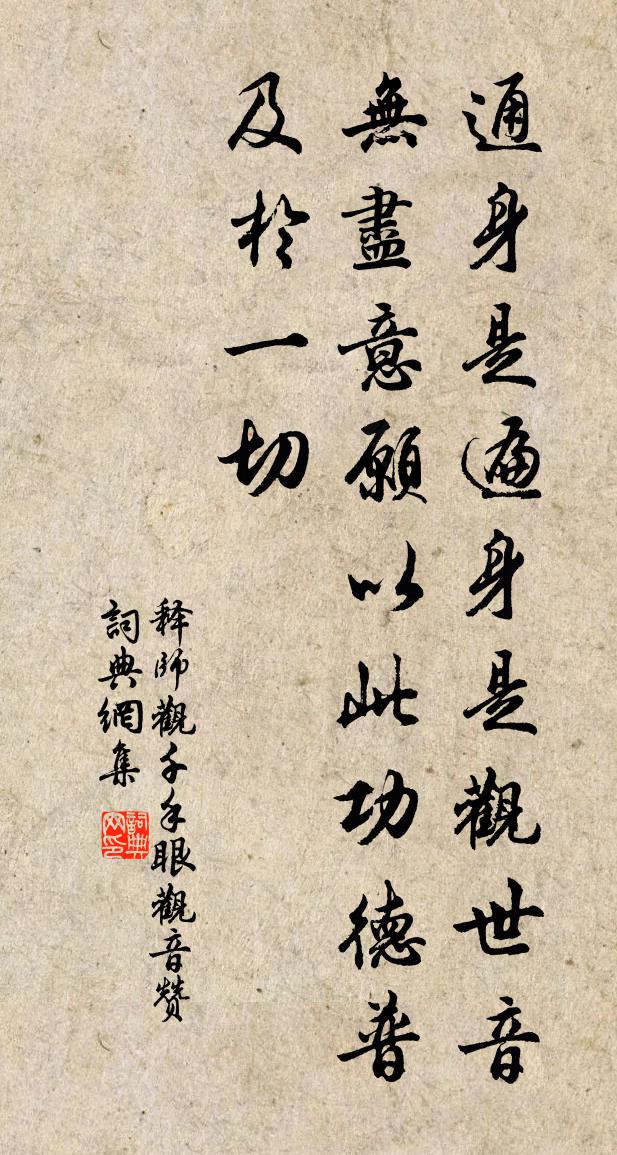 通身是遍身是觀世音
無盡意願以此功德普
及於一切
释師觀千手眼觀音贊
詞典網集
詞典网印